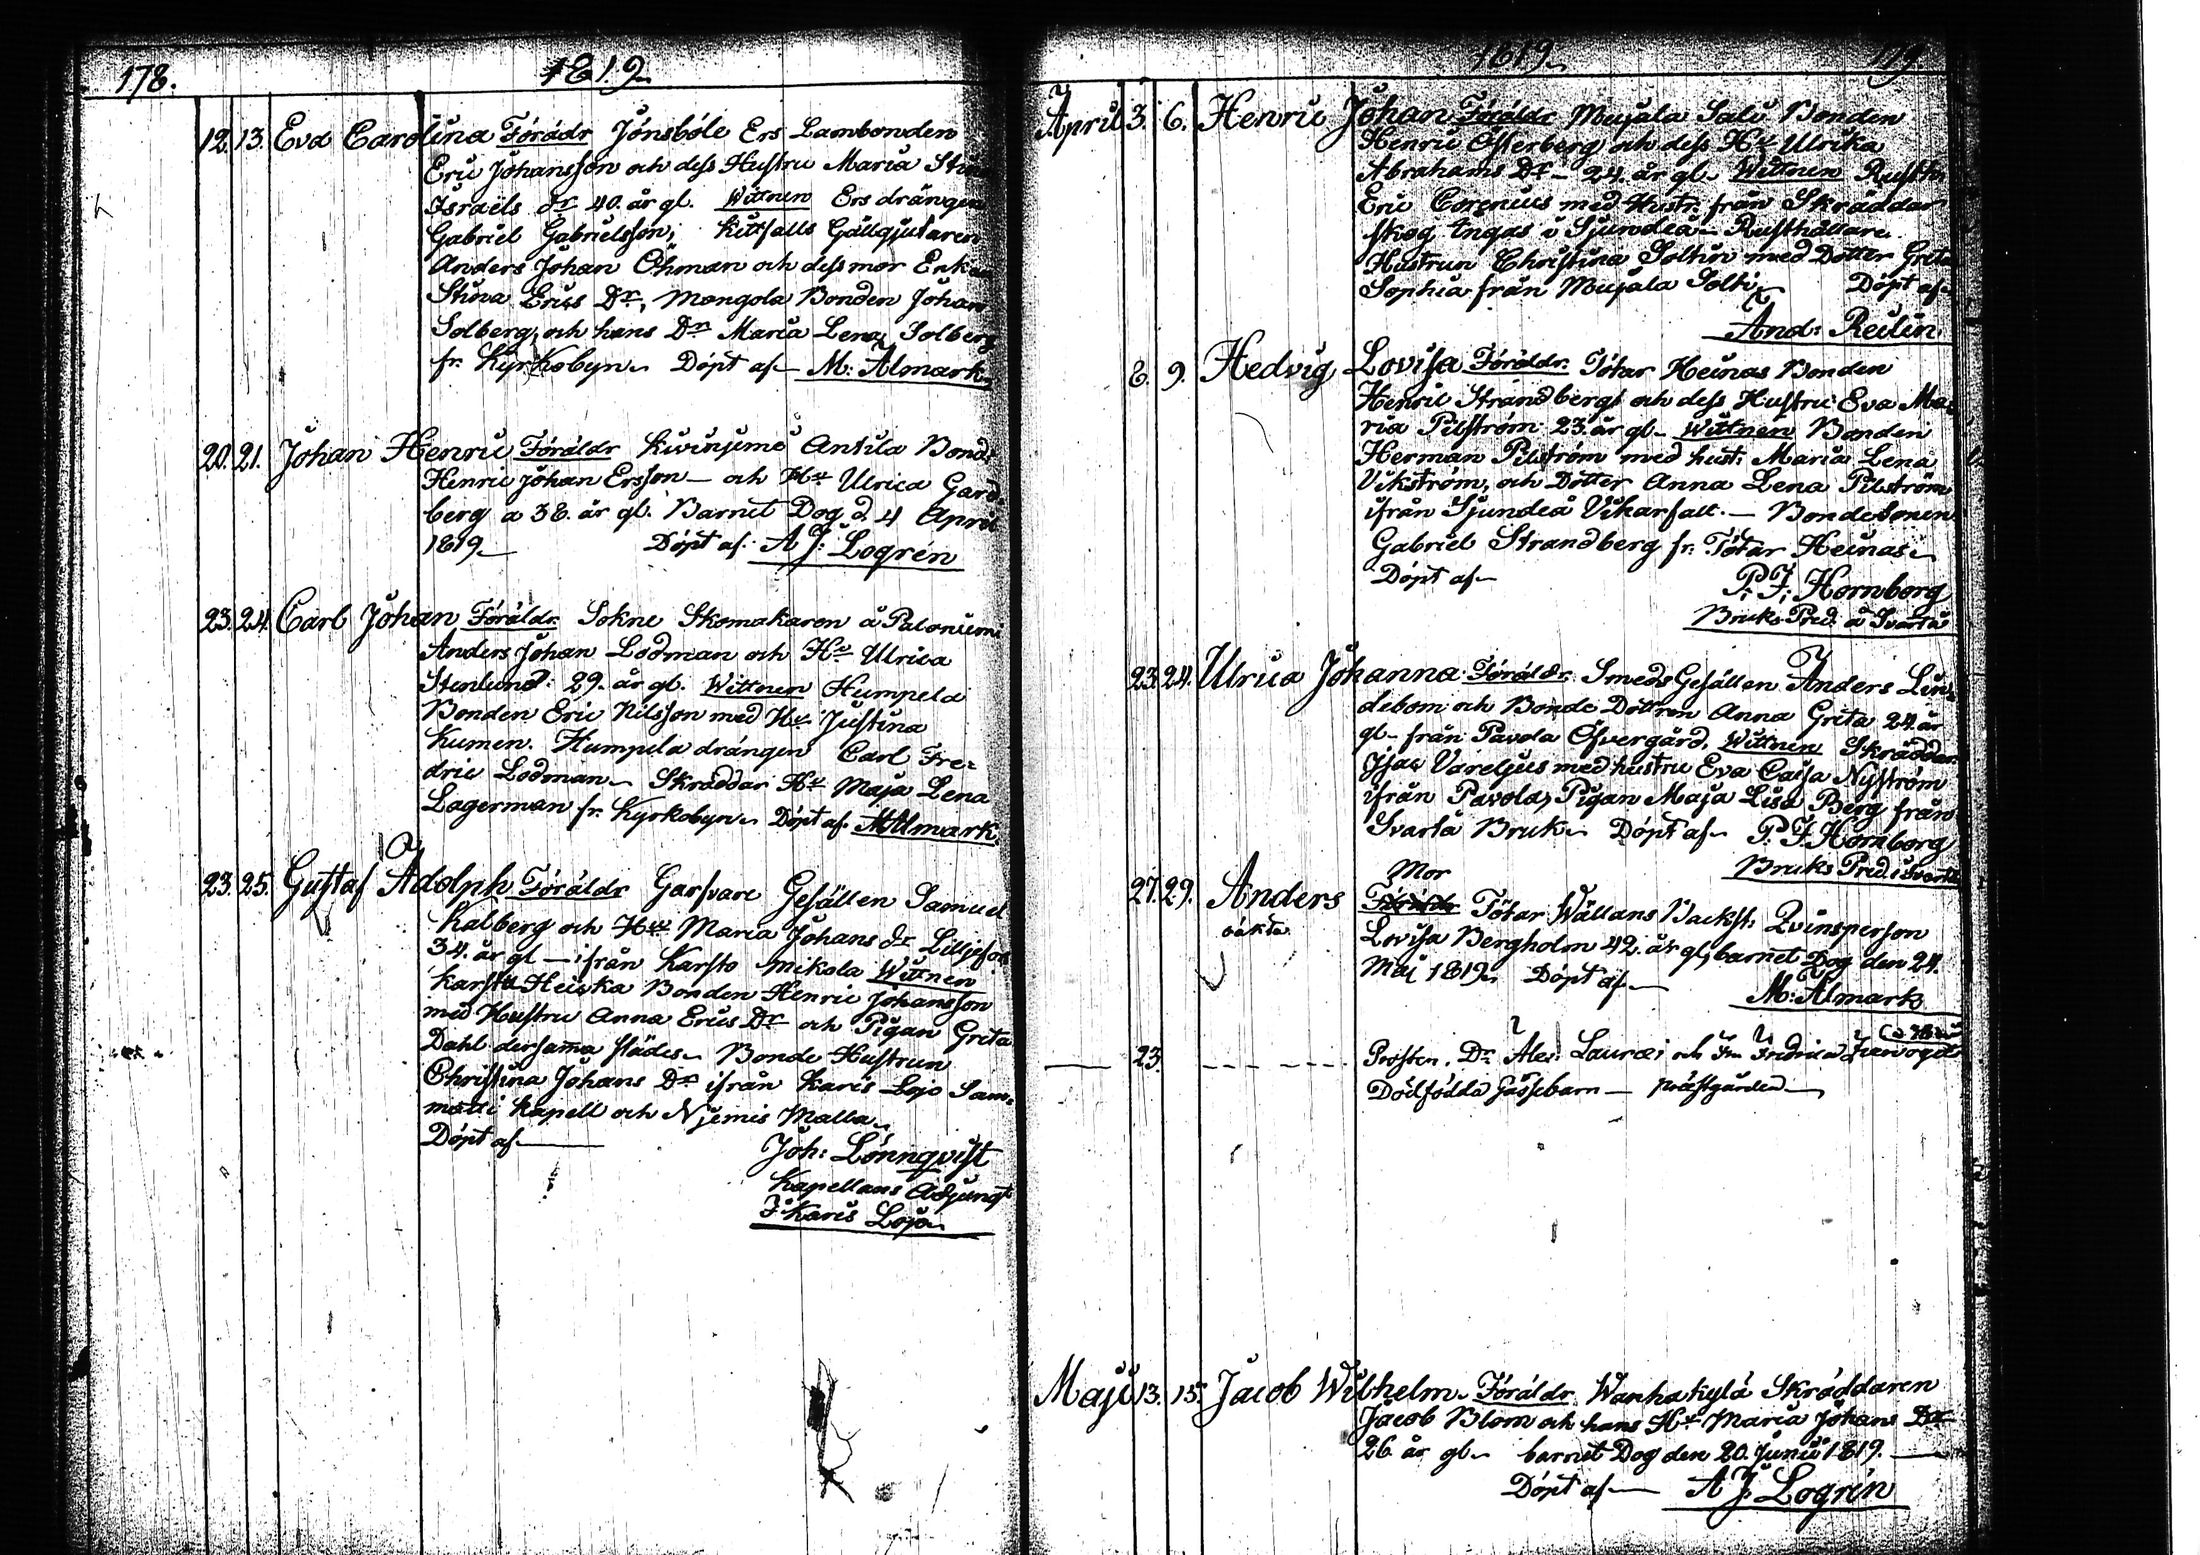 178. 1819.
12. 13. Eva Carolina Förädr Jönsböle Ers Lambonden
Eric Johansson och dess Hustru Maria Stina
Israels dr 40. år gl. Wittnen Ers drängen
Gabriel Gabrielsson, Kittfalls Gällgjutaren
Anders Johan Öhman och dess mor Enkan
Stina Erics Dr, Mongola Bonden Johan
Solberg, och hans Dr Maria Lena Solberg
fr. Kyrkobyn. Döpt af M: Almark
20. 21. Johan Henric Föräldr Kivinjemo Antila Bond:
Henric Johan Ersson och Hu Ulrica Gard-
berg a 38. år gl. Barnet Dog d. 4 April
1819. Döpt af. A J: Logrén
23. 24. Carl Johan Föräldr. Sokne Skomakaren å Paloniemi
Anders Johan Lodman och Hu Ulrica
Stenlund: 29. år gl. Wittnen Humpela
Bonden Eric Nilsson med Hu Justina
Kumen. Humpela drängen Carl Fre-
dric Lodman. Skräddar Hu Maja Lena
Lagerman fr. Kyrkobyn. Döpt af. M Almark
23. 25. Gustaf Adolph Föräldr Garfvare Gesällen Samuel
Kalberg och Hu Maria Johans dr Liljefors
34. år gl — ifrån Karsto Mikola Wittnen
Karsto Heicka Bonden Henric Johansson
med Hustru Anna Erics Dr och Pigan Greta
Dahl dersama städes. Bonde Hustrun
Christina Johans Dr ifrån Karis Lojo Sam-
matti Kapell och Njemis Malla.
Döpt af
Joh: Lönnqvist
Kapellans Adjunct
I Karis Lojo
1819. 179.
April 3. 6. Henric Johan Föräldr Mujala Sali Bonden
Henric Österberg och dess Hu Ulrika
Abrahams Dr — 24. år gl. Wittnen Rusth:
Eric Corenius med Hustr: från Skräddar
skog Ingas i Sjundeå — Rusthållare
Hustrun Christina Soltin med Dotter Greta
Sophia från Mujala Solti Döpt af
And: Reilin
8. 9. Hedvig Lovisa Föräldr. Tötar Heinas Bonden
Henric Strandberg och dess Hustru Eva Ma-
ria Pilström 23. år gl. Wittnen Bonden
Herman Pilström med hust: Maria Lena
Vikström, och Dotter Anna Lena Pilström
ifrån Sjundeå Vikarfall. — Bondesonen
Gabriel Strandberg fr. Tötar Heinas.
Döpt af P. J. Hornborg
Bruks Pred. å Svartå
23. 24. Ulrica Johanna Föräldr. Smeds Gesällen Anders Lin-
debom och Bonde Dottren Anna Greta 24. år
gl. från Pavola Öfvergård. Wittnen Skräddar
Isac Vareljus med hustru Eva Caisa Nyström
ifrån Pavola, Pigan Maja Lisa Berg från
Svartå Bruk. Döpt af P. J. Hornborg
Bruks Pred. i Svartå
27. 29. Anders Mor
oäkta Tötar Wällans Backst: Qvinsperson
Lovisa Bergholm 42. år gl, barnet Dog den 24.
Maj 1819. Döpt af
M: Almark
23. Prosten. Dr Alex: Lauræi och Fru Fredrica
Dödfödda Gossebarn — prästgården
Maji 13. 15. Jacob Wilhelm. Föräldr. Wanhakylä Skräddaren
Jacob Blom och hans Hu Maria Johans Dr
26 år gl. barnet Dog den 20. Junii 1819.
Döpt af A J. Logrén